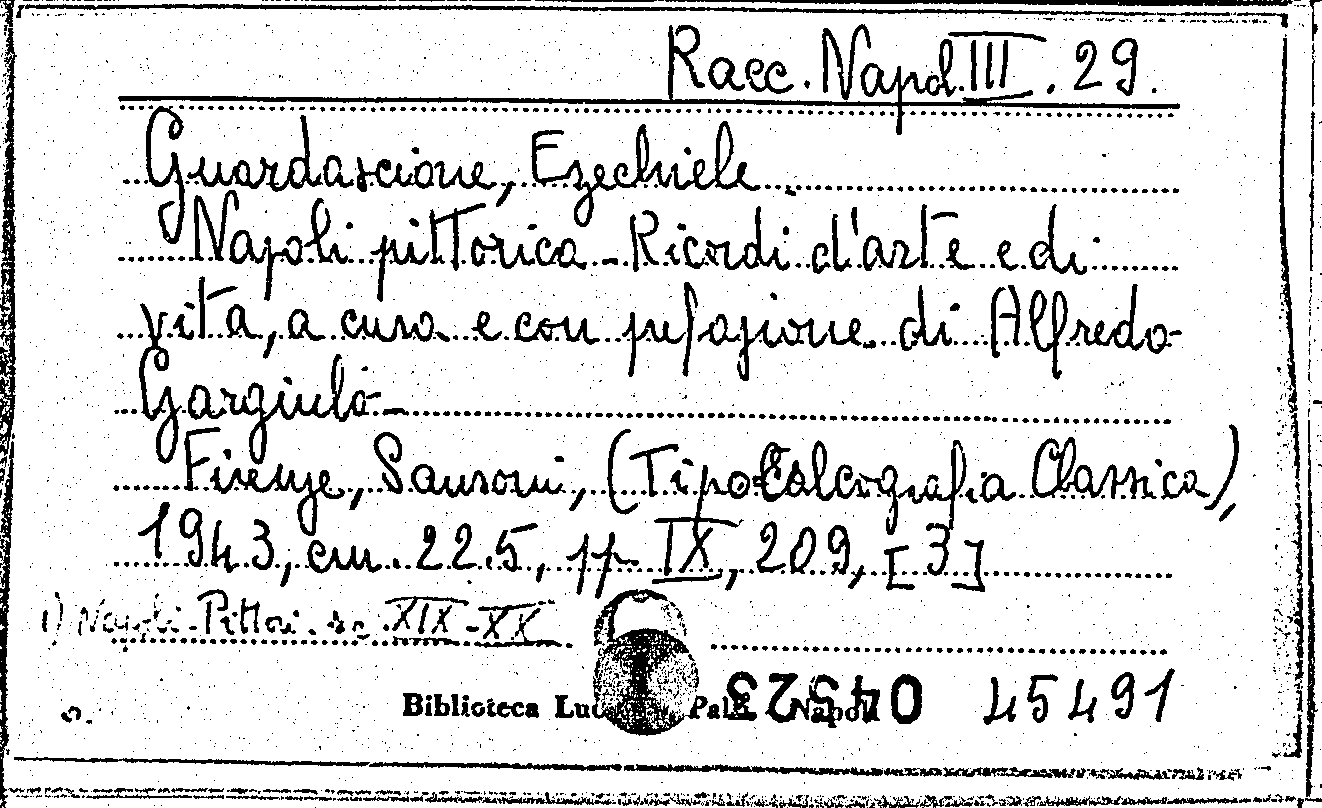 Racc. Napol. III. 29.
Guardascione, Ezechiele.
Napoli pittorica - Ricordi d'arte e di
vita, a cura e con prefazione di Alfredo
Gargiulo -
Firenze, Sansoni, (TipoCalcografia Classica),
1943, cm. 22.5, pp. IX, 209, [3]
1) Napoli - Pittori. sc. XIX-XX
Biblioteca Napoli 45491